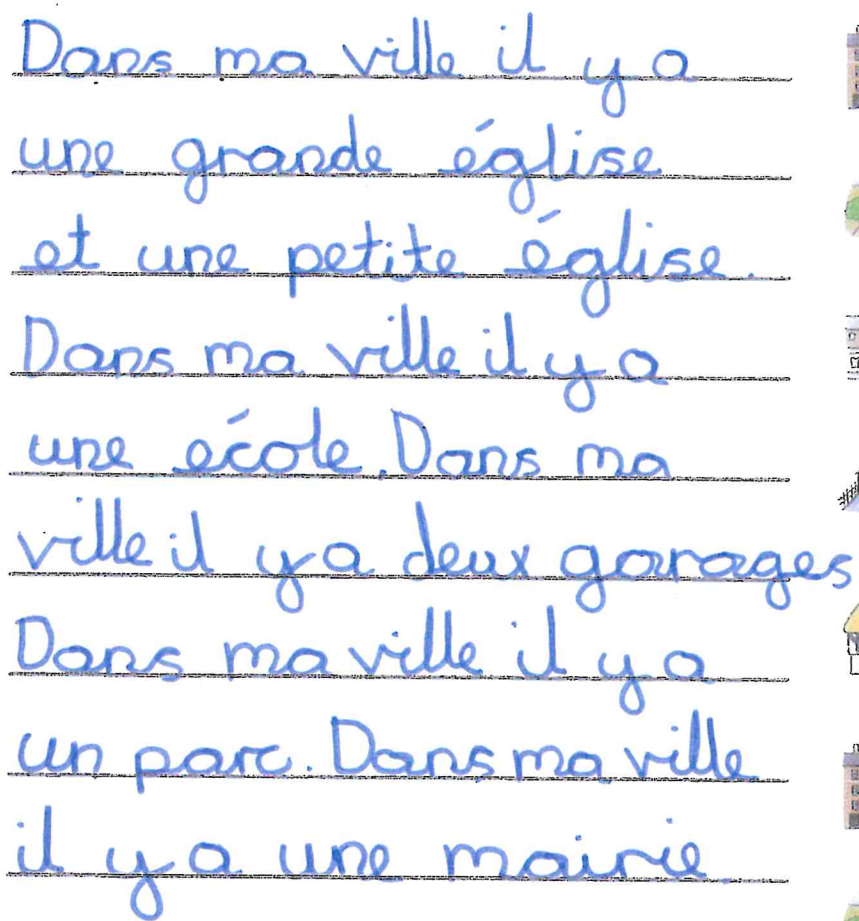 Dans ma ville il y a
une grande église
et une petite église.
Dans ma ville il y a
une école. Dans ma
ville il y a deux garages
Dans ma ville il y a
un parc. Dans ma ville
il y a une mairie.